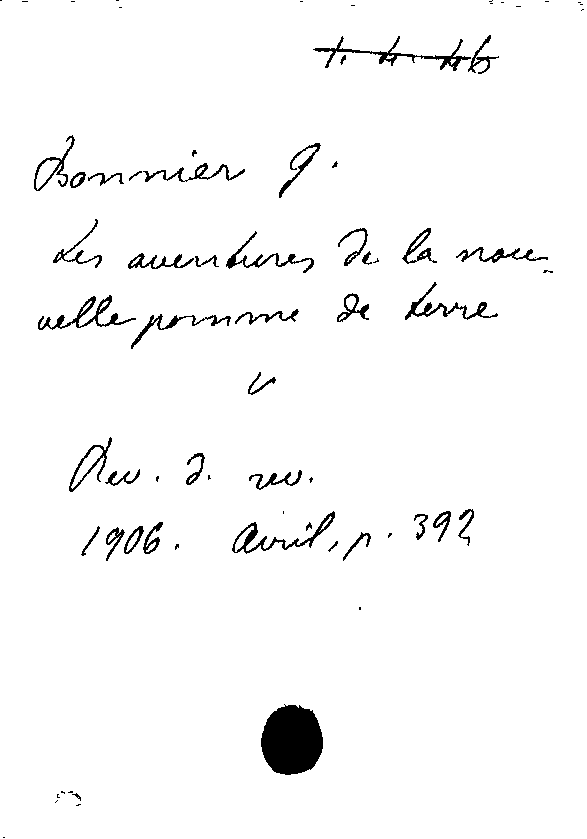 1. 4. 46
Bonnier G.
Les aventures de la nou-
velle pomme de terre
Rev. d. rev.
1906. Avril, p. 392